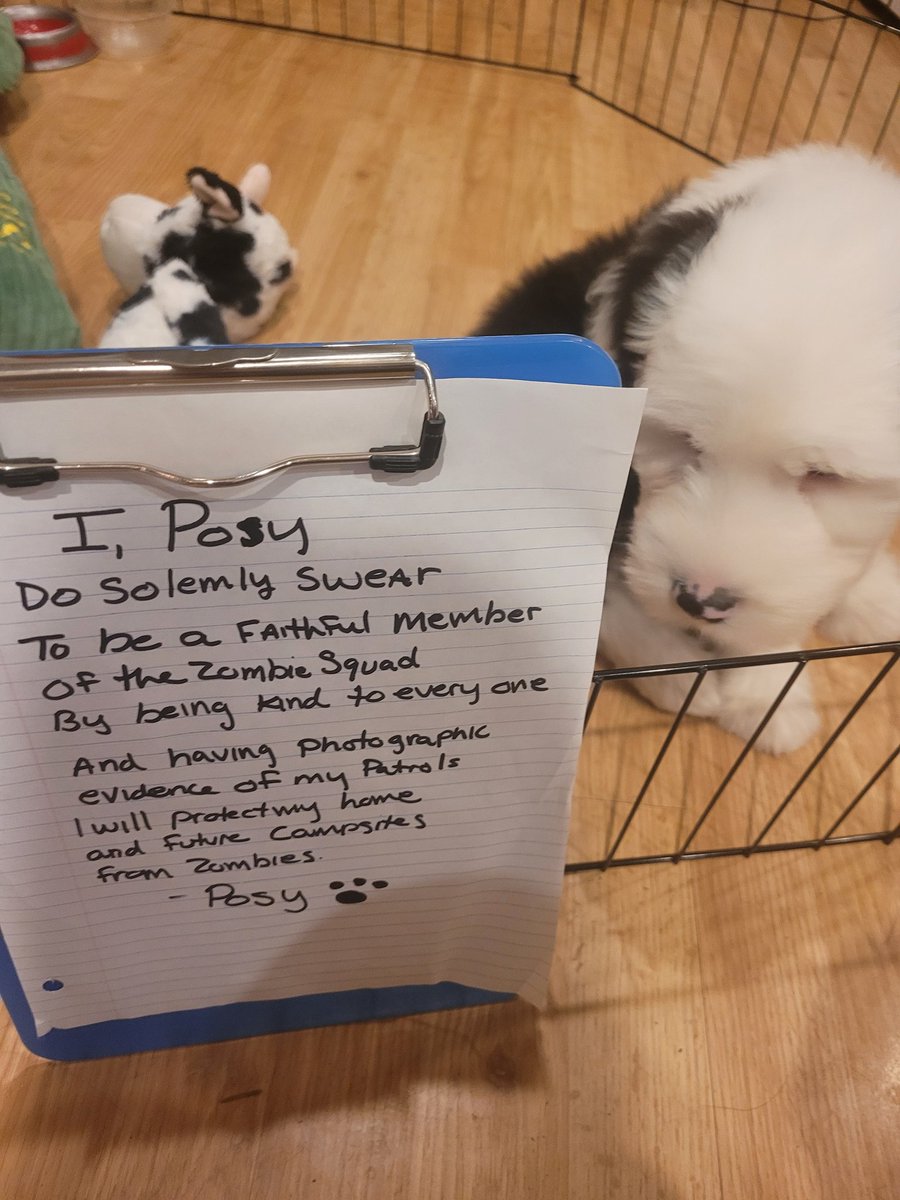 I, Posy
Do Solemly Swear
To be a Faithful Member
Of the Zombie Squad
By being kind to every one
And having photographic
evidence of my Patrols
I will protect my home
and future Campsites
from Zombies.
- Posy